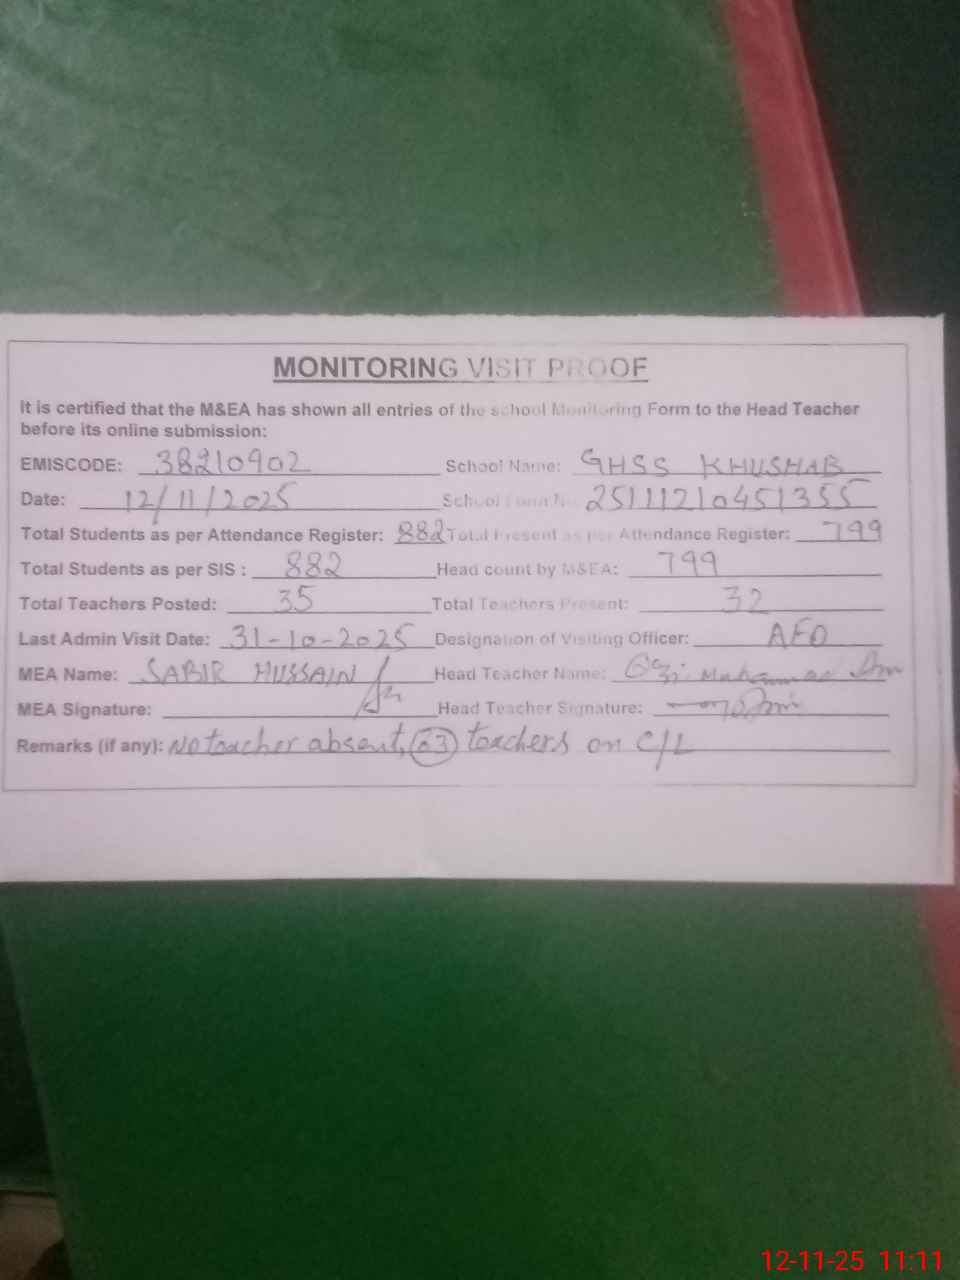 MONITORING VISIT PROOF
It is certified that the M&EA has shown all entries of the school Monitoring Form to the Head Teacher
before its online submission:
EMISCODE: 38210902 School Name: GHSS KHUSHAB
Date: 12/11/2025 School Form No. 25111210451355
Total Students as per Attendance Register: 882 Total Present as per Attendance Register: 799
Total Students as per SIS : 882 Head count by M&EA: 799
Total Teachers Posted: 35 Total Teachers Present: 32
Last Admin Visit Date: 31-10-2025 Designation of Visiting Officer: AEO
MEA Name: SABIR HUSSAIN Head Teacher Name: Muhammad
MEA Signature: Head Teacher Signature:
Remarks (if any): No teacher absent, 03 teachers on C/L
12-11-25 11:11